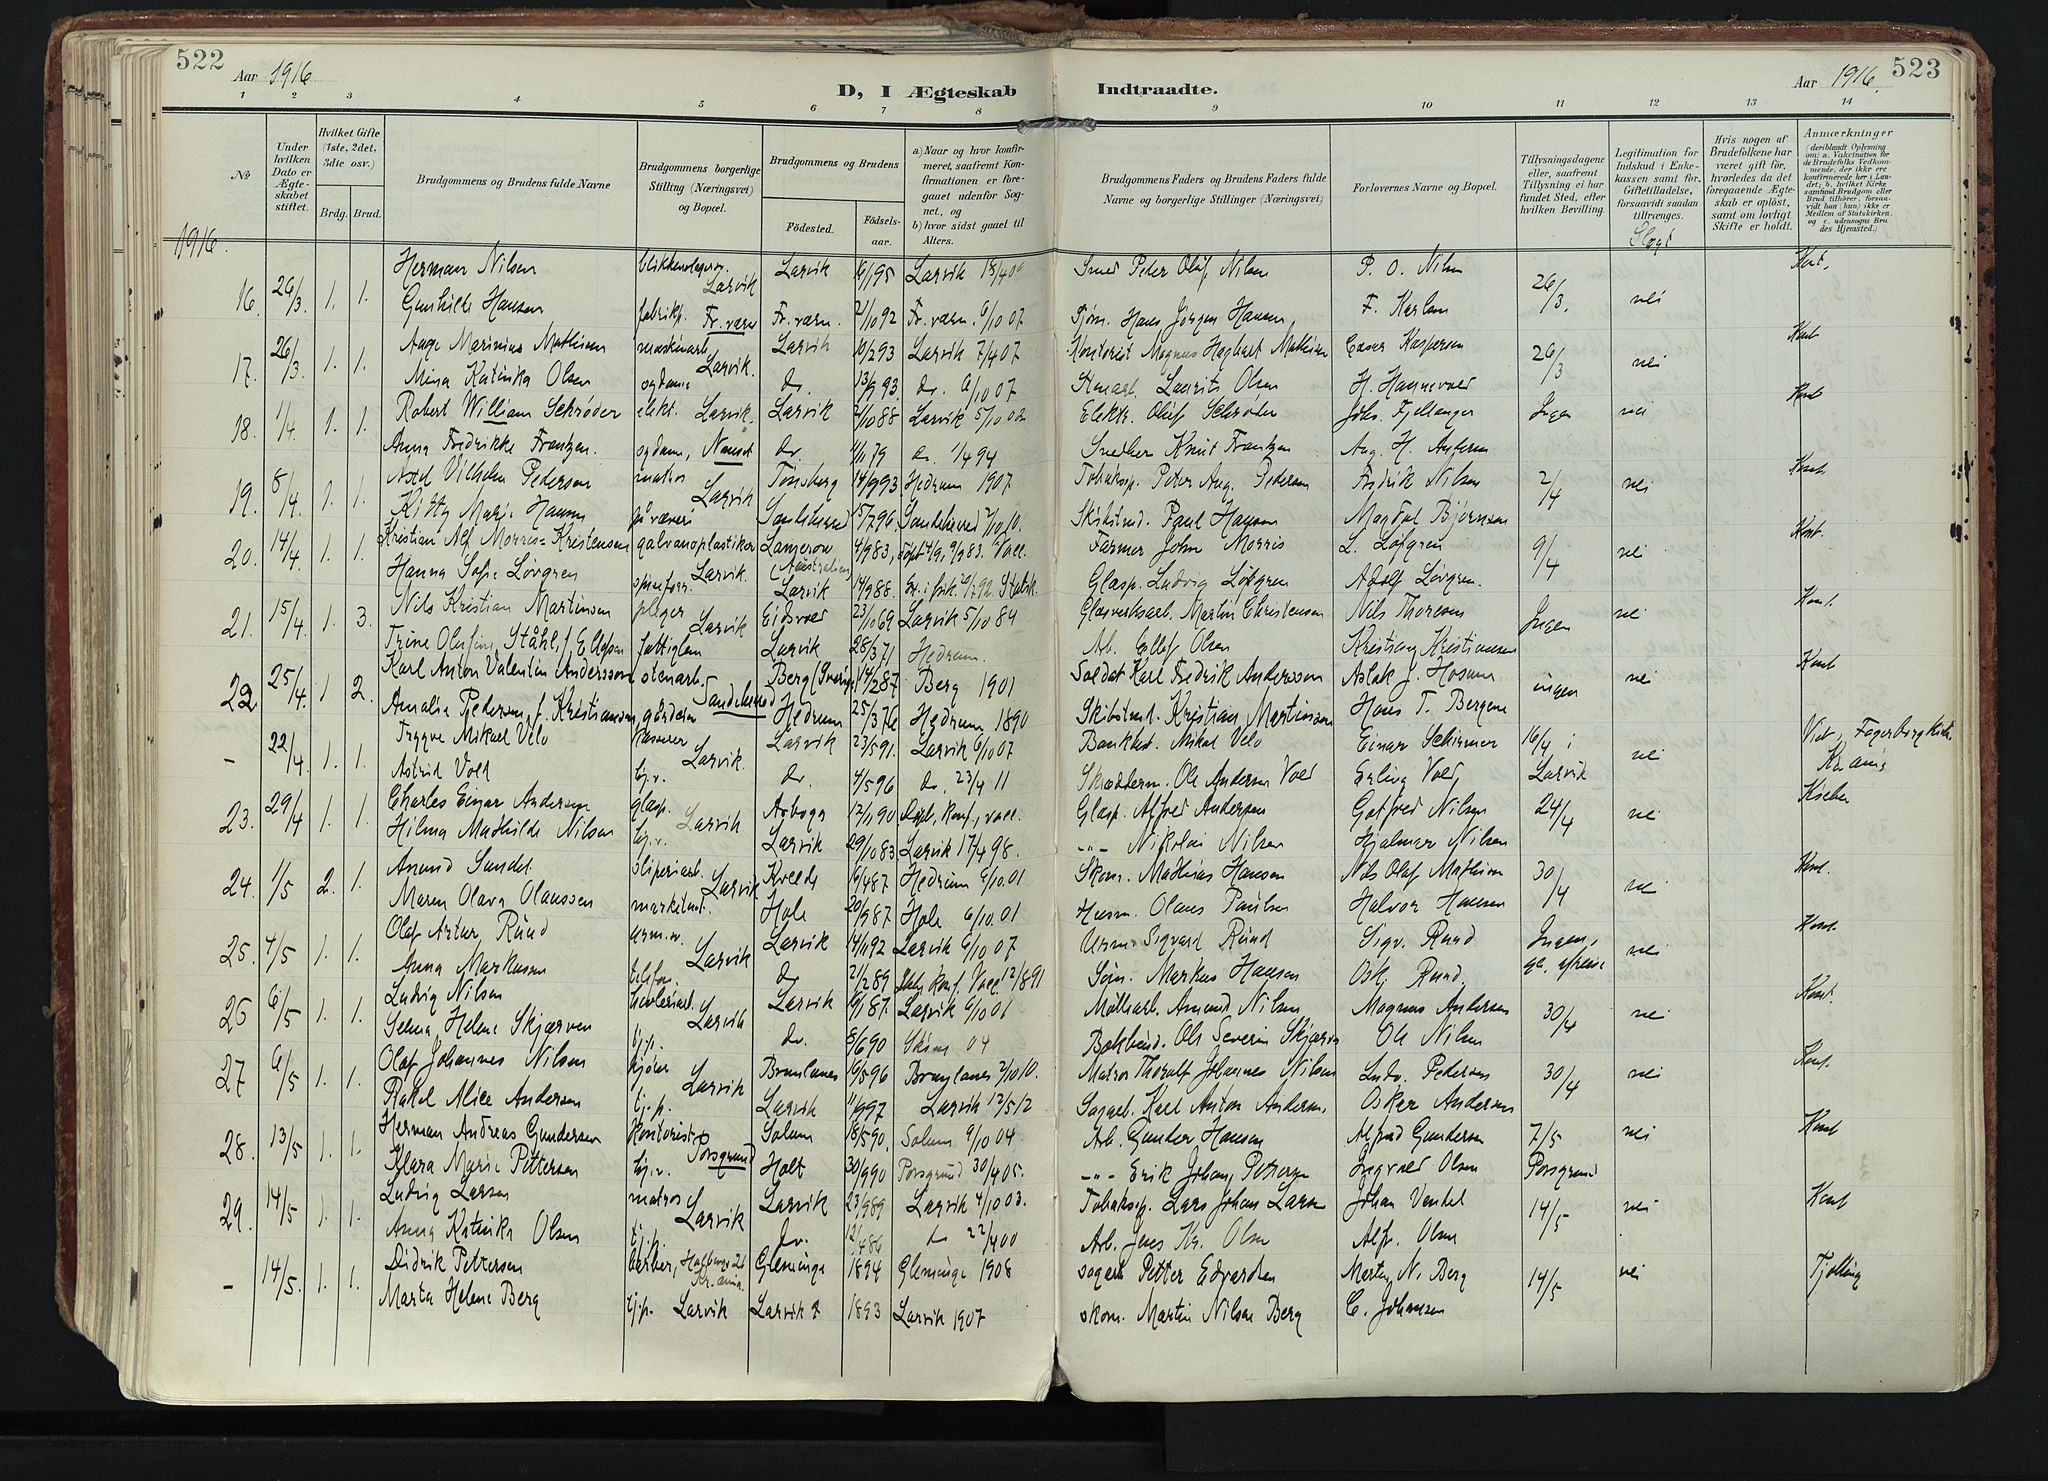 522
Aar 1916
D, I Ægteskab
Indtraadte.
Aar 1916.
523
1 2 3 4 5 6 7 8 9 10 11 12 13 14
No
Under hvilken Dato er Ægteskabet stiftet.
Hvilket Gifte (1ste, 2det, 3die osv.)
Brdg. Brud.
Brudgommens og Brudens fulde Navne
Brudgommens borgerlige Stilling (Næringsvei) og Bopæl.
Brudgommens og Brudens
Födested.
Födselsaar.
a) Naar og hvor konfirmeret, saafremt Konfirmationen er foregaaet udenfor Sognet, og b) hvor sidst gaaet til Alters.
Brudgommens Faders og Brudens Faders fulde Navne og borgerlige Stillinger (Næringsvei)
Forlovernes Navne og Bopæl.
Tillysningsdagene eller, saafremt Tillysning ei har fundet Sted, efter hvilken Bevilling.
Legitimation for Indskud i Enkekassen samt for Giftetilladelse, forsaavidt saadan tiltrænges.
Hvis nogen af Brudefolkene har været gift før, hvorledes da det foregaaende Ægteskab er oplöst, samt om lovligt Skifte er holdt.
Anmærkninger (deriblandt Oplysning om: a. Vakcination for de Brudefolks Vedkommende, der ikke ere konfirmerede her i Landet; b. hvilket Kirkesamfund Brudgom eller Brud tilhører, forsaavidt han (hun) ikke er Medlem af Statskirken, og c. udensogns Brudes Hjemsted.)
1916
Herman Nilsen Larvik 6/1 95 Larvik Smed Peter Oluf Nilsen P. O. Nilsen Kont.
16. 26/3 1. 1. Larvik 26/3. nei
Gunhilde Hansen fabrikp. Fr.værn Fr.værn. 2/10 92 Fr.værn. 6/10 07 Hans Jörgen Hansen, F. Karlsen
Aage Marinius Mathisen maskinarb. Larvik 10/2 93 Larvik 7/4 07 Kontorist Magnus Hagbart Mathisen Kaspersen Kont
17. 26/3 1. 1. Larvik. 26/3 nei
Mina Katinka Olsen do. 13/9 93. do. 6/10 07 Laurits Olsen H. Hannevold
Robert William Schrøder elekt. Larvik. Larvik 2/10 88 Larvik 5/10 02 Elektr. Oluf Schrøder Joh. Fjellanger Ingen nei Kont
18. 1/4. 1. 1.
Anna Fredrikke Frantzen. Nanset do. 11/1 79 do. 94 Snedker Knut Frantzen Aug. H. Andersen
Axel Vilhelm Pedersen matros Tønsberg 14/9 93 Hedrum 1907 Tobaksp. Peter Aug. Pedersen Fredrik Nilsen Kont
19. 8/4. 1. 1. Larvik 2/4 nei
Kitty Marie Hansen Sandeherred 15/7 96. Sandeherred 2/10 10. Paul Hansen Magdal Björnsen
Kristian Alf Morris-Kristensen galvanoplastiker 4/9 83, Farmer John Morris L. Løfgren Kont.
20. 14/4. 1. 1. Larvik. (Australien) 9/4 nei
Hanna Sofie Lövgren Larvik 14/9 88. Glasp. Ludvig Løfgren Adolf Lövgren.
Nils Kristian Martinsen pleger Larvik Eidsvold 23/10 69 Larvik 5/10 84 Glasverksarb. Martin Christensen Nils Thoresen Ingen nei Kont.
21. 15/4. 1. 3.
Trine Olufine Ståhl, f. Ellefsen fattiglem Larvik 28/3 71 Hedrum. Arb. Ellef Olsen Kristian Kristiansen
Karl Anton Valentin Andersson stenarb. Berg (Sverige) 14/2 87 Berg 1901 Soldat Karl Fredrik Andersson Aslak J. Kont
22 25/4. 1 2. Sandeherred ingen nei
Amalie Pedersen, f. Kristiansen, Hedrum 25/3 76 Hedrum, 1890 Kristian Martinsen Hans T. Bergene
Trygve Mikael Velo kasserer Larvik 23/5 91. Larvik 6/10 07 Mikal Velo Einar Schirmer 16/4 i Viet i Fagerborg kirke,
- 22/4. 1. 1. Larvik. nei Kr.ania
Astrid Vold do. 4/5 96 do. 23/4 11 Ole Andersen Vold Erling Vold, Larvik
Charles Einar Andersen glasp. Arboga 12/1 90 Glasp. Alfred Andersen Gotfred Nilsen 24/4 Kirken
23. 29/4 1. 1. Larvik nei
Hilma Mathilde Nilsen Larvik 29/10 83 Larvik 17/4 98. Nikolai Nilsen Hjalmar Nilsen
Amund Sundet sliperiarb. Kvelde 16/4 87 Hedrum 6/10 01 Skom. Mathias Hansen Nils Olaf Mathisen 30/4 Kont.
24. 1/5 2. 1. Larvik nei
Maren Olava Olaussen Hole 20/9 87 Hole 6/10 01 Husm. Olaus Paulsen Halvor Hansen
Olaf Artur Rúnd Larvik 14/11 92 Larvik 6/10 07 Urm. Sigvard Rúnd Sigv. Ruud Ingen, Kont.
25. 4/5 1. 1. Larvik nei
Anna Markussen telefon. do 21/2 89 Vacc. 12/8 91 Markus Hansen Osk. Ruud
Ludvig Nilsen Larvik 6/1 87. Larvik 6/10 01 Amund Nilsen Magnus Andersen Kont.
26 6/5 1. 1. Larvik 30/4 nei
Selma Helene Skjærven tj.p. do. 8/6 90 Skien 04 Bokbind. Ole Severin Skjærven Ole Nilsen
Olaf Johannes Nilsen Brunlanes 6/5 96 Brunlanes 2/10 10. Matros Thoralf Johannes Nilsen Ludv. Pedersen Kont.
27 6/5 1. 1. Larvik 30/4 nei
Rakel Alice Andersen tj.p. Larvik 11/9 97 Larvik 12/5 12 Sagarb. Karl Anton Andersen. Oskar Andersen
Herman Andreas Gundersen kontorist Solum 18/5 90. Solum 9/10 04. Arb. Gunder Hansen Alfred Gundersen 7/5 nei Kont
28. 13/5 1. 1. Porsgrund
Klara Marie Pettersen Holt 30/9 90 Porsgrund 30/4 05. Erik Johan Petersen Ingvald Olsen Porsgrund
Ludvig Larsen matros Larvik 23/9 89 Larvik 4/10 03. Tobaksp. Lars Johan Larsen Johan Vendel 14/5 nei Kont
29. 14/5 1. 1. Larvik
Anna Katinka Olsen tj.p. do. 12/4 86 do 22/4 00 Arb. Jens Kr. Olsen Alf. Olsen
Didrik Pettersen barber, Kr.ania Glemminge 1894 Glemminge 1908 sagarb Petter Edvardsen Martin N. Berg 14/5 nei Tjølling
- 14/5. 1. 1.
Marta Helene Berg tj.p. Larvik Larvik 1893 Larvik 1907 skom. Martin Nilsen Berg C. Johansen